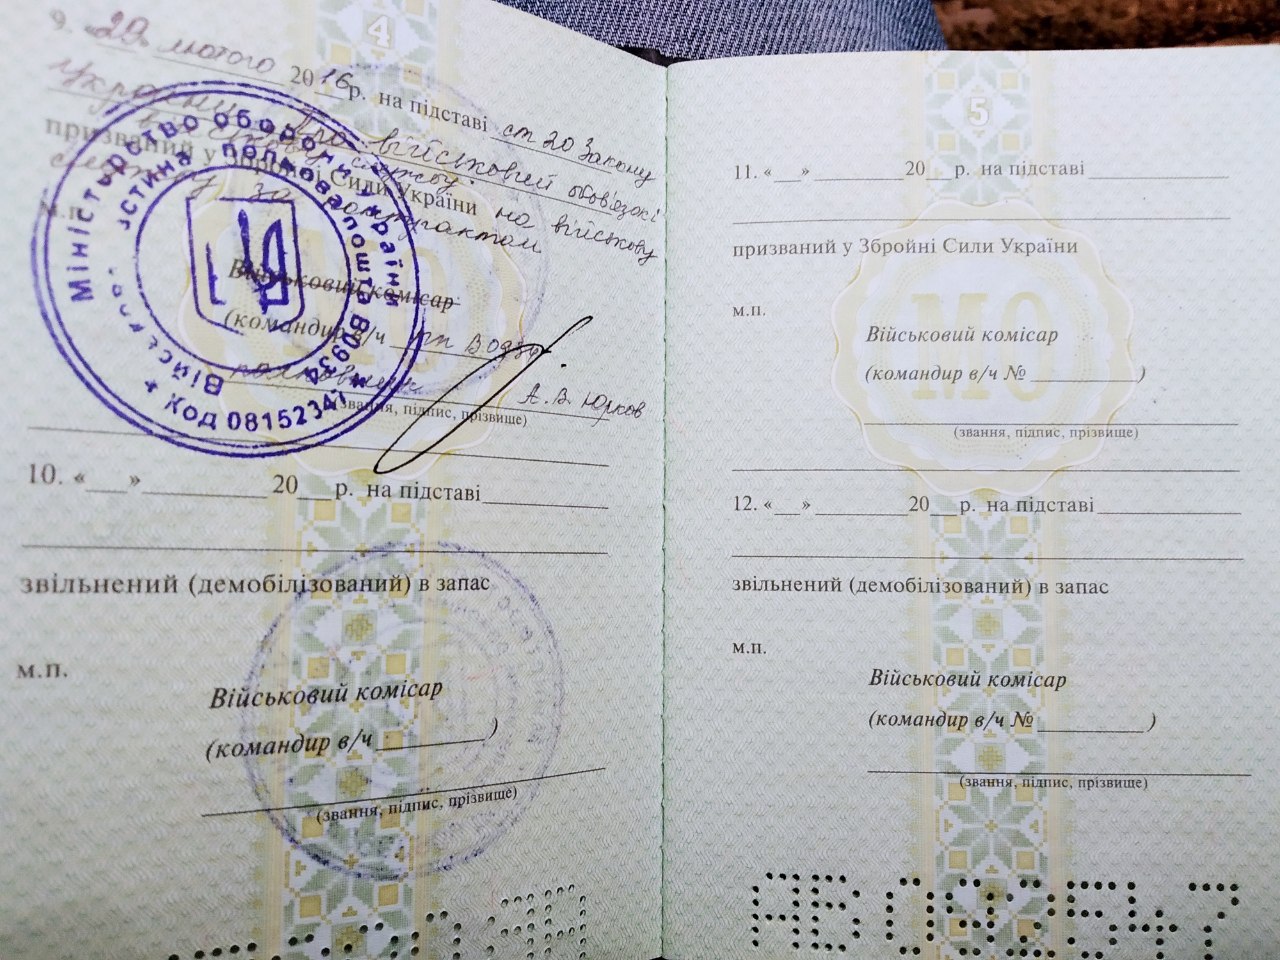 4
9. «20» лютого 2016р. на підставі ст 20 Закону
України "Про військовий обов'язок і
військову службу" на військову
призваний у Збройні Сили України
службу за контрактом
м.п.
Військовий комісар
(командир в/ч пп В0934
полковник А.В. Юрков
(звання, підпис, прізвище)
Міністерство оборони України
польова пошта В0934
Код 08152347
10. «___»__________20___р. на підставі__________
звільнений (демобілізований) в запас
м.п.
Військовий комісар
(командир в/ч__________)
(звання, підпис, прізвище)
5
11. «___»__________20___р. на підставі__________
призваний у Збройні Сили України
м.п.
МО
Військовий комісар
(командир в/ч №__________)
(звання, підпис, прізвище)
12. «___»__________20___р. на підставі__________
звільнений (демобілізований) в запас
м.п.
Військовий комісар
(командир в/ч №__________)
(звання, підпис, прізвище)